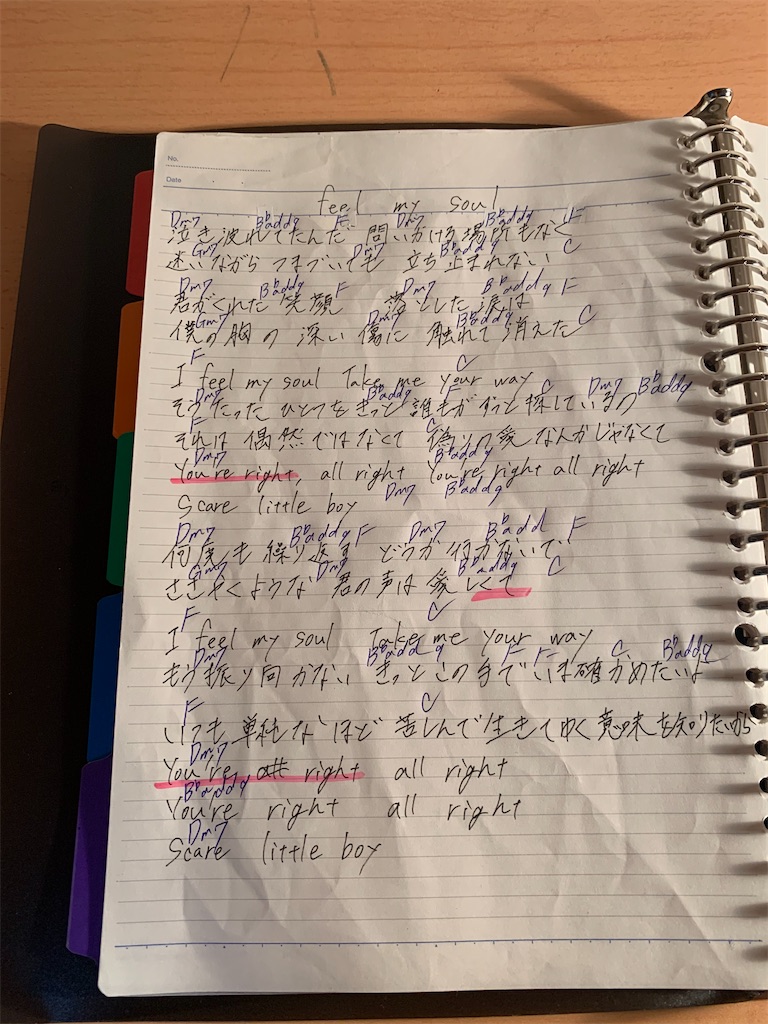 No.
Date
feel my soul
Dm7 B♭add9 F Dm7 B♭add9 F
泣き疲れてたんだ 問いかける場所もなく
Gm7 Dm7 B♭add9 C
迷いながら つまづいても 立ち止まれない
Dm7 B♭add9 F Dm7 B♭add9 F
君がくれた 笑顔 落とした涙は
Gm7 Dm7 B♭add9 C
僕の胸の 深い 傷に 触れて 消えた
F C
I feel my soul Take me your way
B♭add9 F C Dm7 B♭add9
そうたった ひとつを きっと 誰もが ずっと 探しているの
F C
それは 偶然ではなくて 偽りの愛なんかじゃなくて
Dm7 B♭add9
You're right, all right You're right all right
Dm7 B♭add9
Scare little boy
Dm7 B♭add9 F Dm7 B♭add F
何度も 繰り返す どうか 行かないで
Gm7 Dm7 B♭add9 C
ささやくような 君の声は 愛しくて
F C
I feel my soul Take me your way
Dm7 B♭add9 F F C B♭add9
もう振り向かない きっとこの手で いま確かめたいよ
F C
いつも 単純なほど 苦しんで 生きてゆく 意味を知りたいから
Dm7
You're right all right
B♭add9
You're right all right
Dm7
Scare little boy